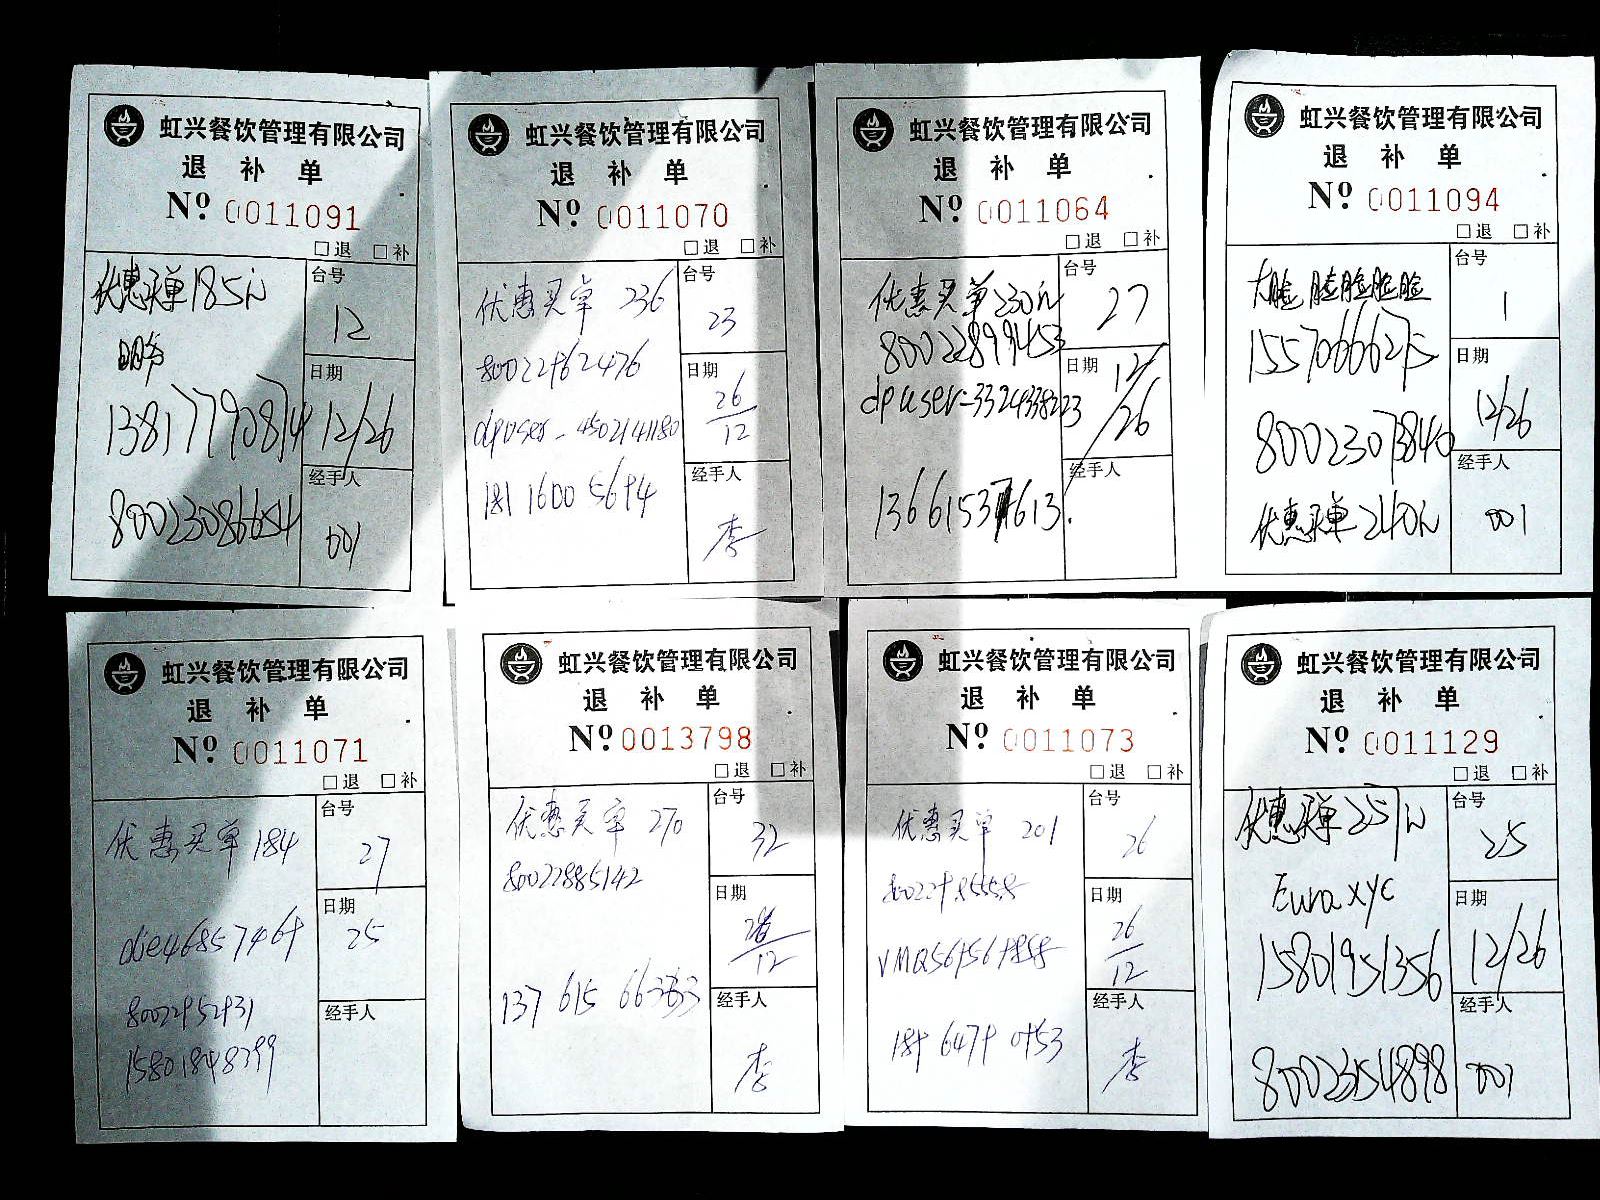 虹兴餐饮管理有限公司
退 补 单
Nº 0011091
□退 □补
优惠买单185元
台号
12
日期
13817790874
12/26
经手人
80023086654
001
虹兴餐饮管理有限公司
退 补 单
Nº 0011070
□退 □补
优惠买单 236
台号
23
日期
26/12
dpuser-4502141180
经手人
李
虹兴餐饮管理有限公司
退 补 单
Nº 0011064
□退 □补
优惠买单230元
台号
27
80022899453
日期
12/26
dpuser-3324338223
经手人
虹兴餐饮管理有限公司
退 补 单
Nº 0011094
□退 □补
大脸脸脸脸脸
台号
1
15570666275
日期
12/26
80023073840
经手人
优惠买单240元
001
虹兴餐饮管理有限公司
退 补 单
Nº 0011071
□退 □补
优惠买单 184
台号
27
日期
25
经手人
15801848399
虹兴餐饮管理有限公司
退 补 单
Nº 0013798
□退 □补
优惠买单 270
台号
32
80022885142
日期
经手人
李
虹兴餐饮管理有限公司
退 补 单
Nº 0011073
□退 □补
优惠买单 201
台号
26
日期
26/12
经手人
李
虹兴餐饮管理有限公司
退 补 单
Nº 0011129
□退 □补
优惠买单257元
台号
25
Eura xyc
日期
15801951356
12/26
经手人
80023154898
001